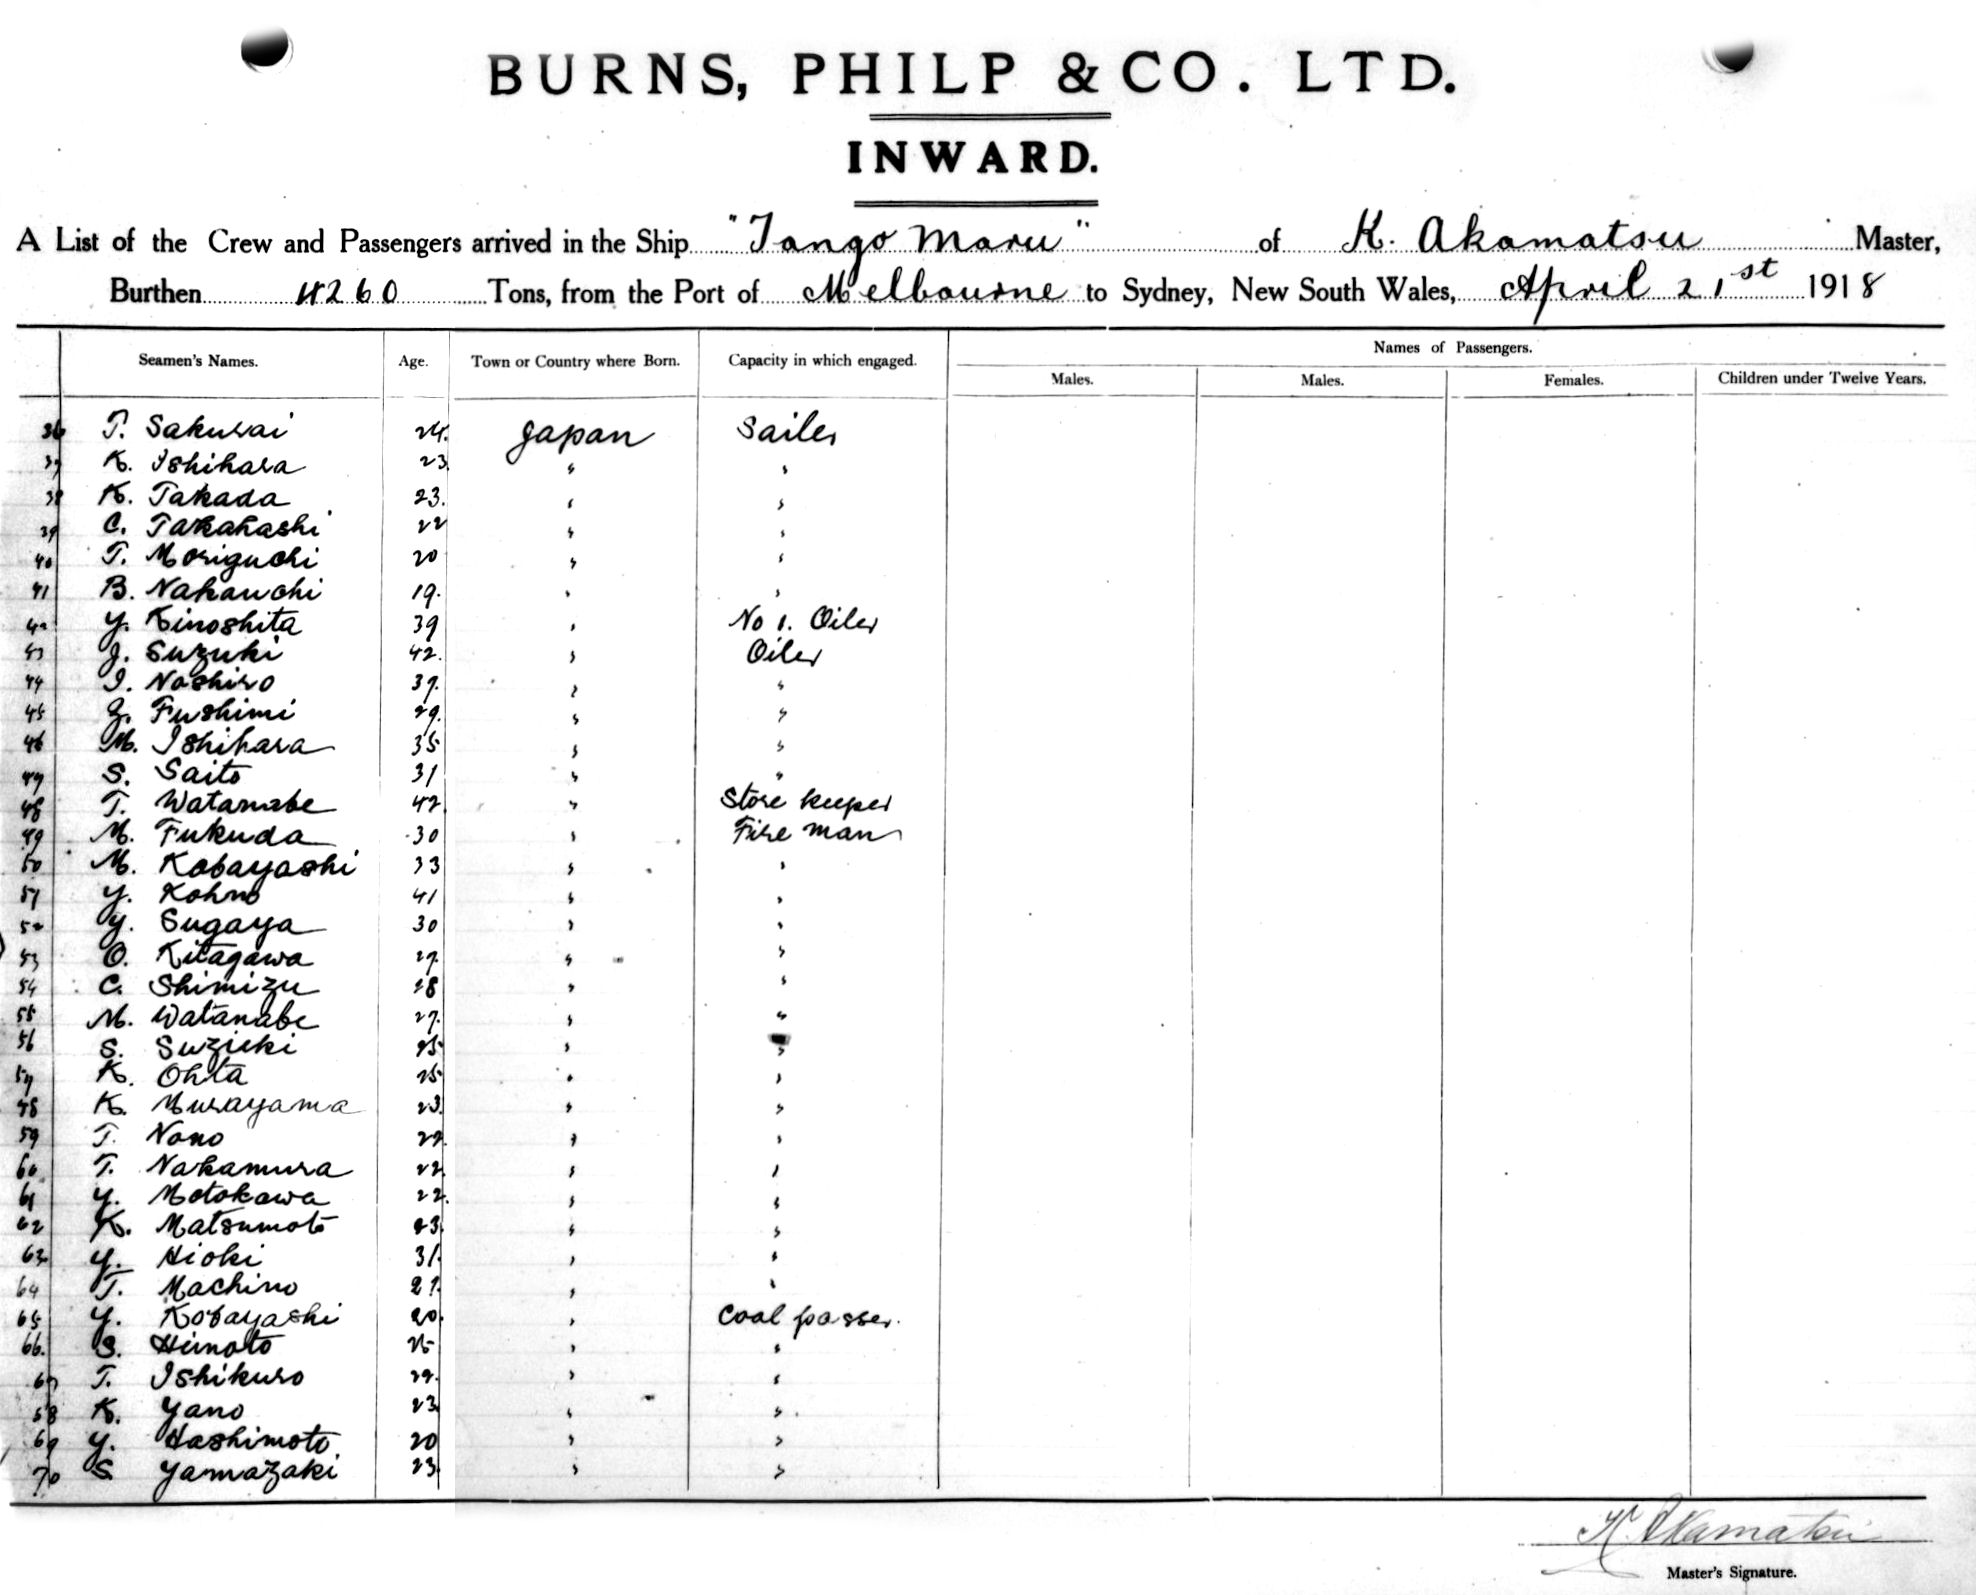 BURNS, PHILP & CO. LTD.
INWARD.
A List of the Crew and Passengers arrived in the Ship "Tango Maru" of K. Akamatsu Master,
Burthen 4260 Tons, from the Port of Melbourne to Sydney, New South Wales, April 21st 1918
Names of Passengers.
Seamen's Names. Age. Town or Country where Born. Capacity in which engaged. Males. Males. Females. Children under Twelve Years.
36 T. Sakurai 24. Japan Sailer
37 K. Ishihara 23 " "
38 K. Takada 23. " "
39 C. Takahashi 22 " "
40 T. Moriguchi 20 " "
41 B. Nakauchi 19. " "
42 Y. Kinoshita 39 " No 1. Oiler
43 J. Suzuki 42. " Oiler
44 I. Noshiro 37. " "
45 Z. Fushimi 29. " "
46 M. Ishihara 35 " "
47 S. Saito 31 " "
48 T. Watanabe 42. " Store keeper
49 M. Fukuda 30 " Fire man
50 M. Kobayashi 33 " "
51 Y. Kohno 41 " "
52 Y. Sugaya 30 " "
53 O. Kitagawa 27. " "
54 C. Shimizu 28 " "
55 M. Watanabe 27. " "
56 S. Suzuki 25 " "
57 K. Ohta 25 " "
58 K. Murayama 23. " "
59 T. Nono 22. " "
60 T. Nakamura 22 " "
61 Y. Motokawa 22. " "
62 K. Matsumoto 23. " "
63 Y. Hioki 31. " "
64 T. Machino 21. " "
65 Y. Kobayashi 20. " Coal passer.
66. S. Himoto 25 " "
67 T. Ishikuro 22. " "
58 K. Yano 23 " "
69 Y. Hashimoto 20 " "
70 S Yamazaki 23. " "
K. Akamatsu
Master's Signature.